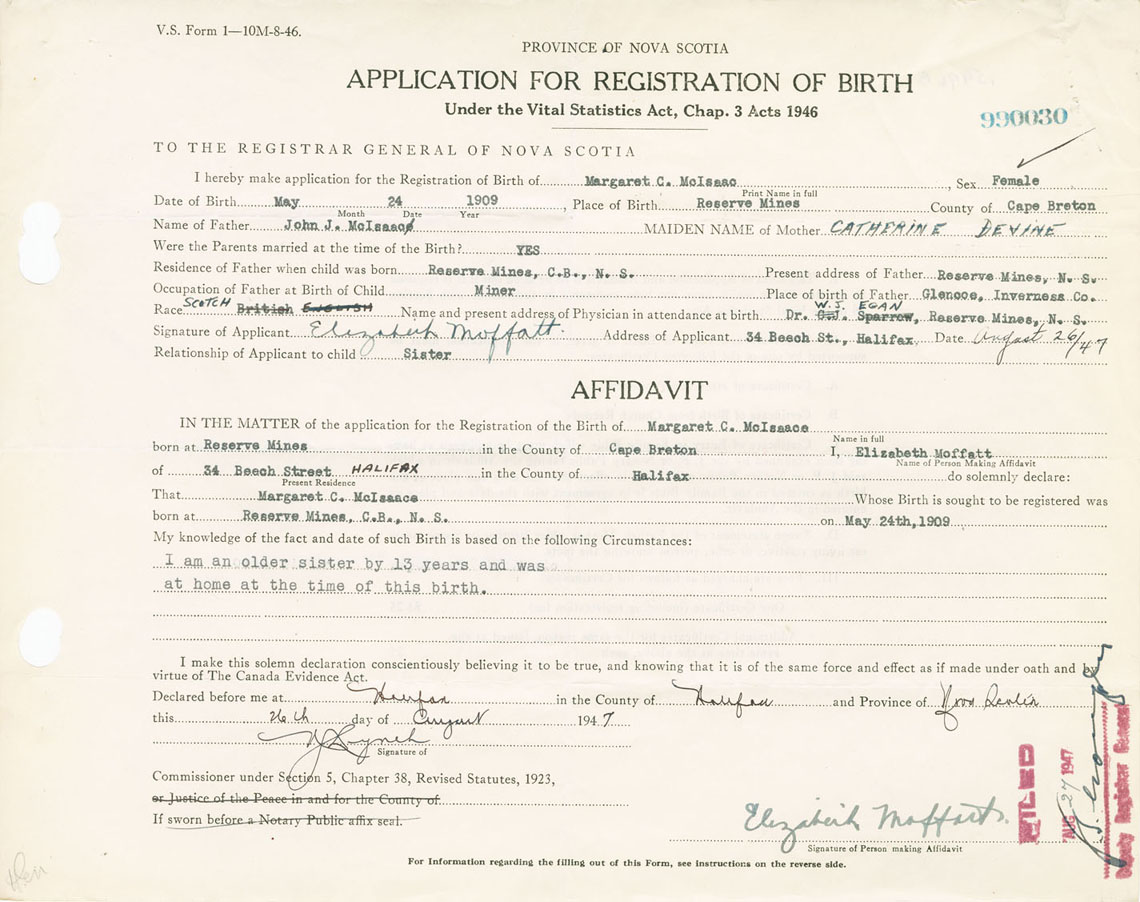 V.S. Form 1—10M-8-46.
PROVINCE OF NOVA SCOTIA
APPLICATION FOR REGISTRATION OF BIRTH
Under the Vital Statistics Act, Chap. 3 Acts 1946
990030
TO THE REGISTRAR GENERAL OF NOVA SCOTIA
I hereby make application for the Registration of Birth of Margaret C. McIsaac, Sex Female
Print Name in full
Date of Birth May 24 1909, Place of Birth Reserve Mines County of Cape Breton
Month Date Year
Name of Father John J. McIsaac MAIDEN NAME of Mother CATHERINE DEVINE
Were the Parents married at the time of the Birth? YES
Residence of Father when child was born Reserve Mines, C.B., N. S. Present address of Father Reserve Mines, N. S.
Occupation of Father at Birth of Child Miner Place of birth of Father Glencoe, Inverness Co.
W. J. EGAN
Race SCOTCH British ENGLISH Name and present address of Physician in attendance at birth Dr. C.J. Sparrow, Reserve Mines, N. S.
Signature of Applicant Elizabeth Moffatt. Address of Applicant 34 Beech St., Halifax. Date August 26/47
Relationship of Applicant to child Sister
AFFIDAVIT
IN THE MATTER of the application for the Registration of the Birth of Margaret C. McIsaace
Name in full
born at Reserve Mines in the County of Cape Breton I, Elizabeth Moffatt
Name of Person Making Affidavit
of 34 Beech Street HALIFAX in the County of Halifax do solemnly declare:
Present Residence
That Margaret C. McIsaace Whose Birth is sought to be registered was
born at Reserve Mines, C.B., N. S. on May 24th, 1909
My knowledge of the fact and date of such Birth is based on the following Circumstances:
I am an older sister by 13 years and was
at home at the time of this birth.
I make this solemn declaration conscientiously believing it to be true, and knowing that it is of the same force and effect as if made under oath and by
virtue of The Canada Evidence Act.
Declared before me at Halifax in the County of Halifax and Province of Nova Scotia
this 26th day of August 1947
Signature of
Commissioner under Section 5, Chapter 38, Revised Statutes, 1923,
or Justice of the Peace in and for the County of
If sworn before a Notary Public affix seal.
Elizabeth Moffatt.
Signature of Person making Affidavit
For Information regarding the filling out of this Form, see instructions on the reverse side.
FILED
AUG 27 1947
Deputy Registrar General